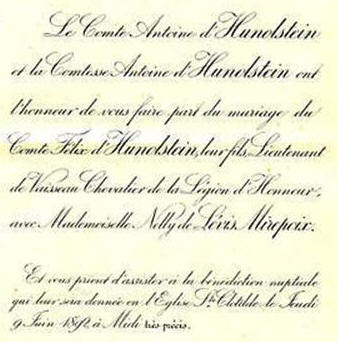 Le Comte Antoine d'Hunolstein
et la Comtesse Antoine d'Hunolstein ont
l'honneur de vous faire part du mariage du
Comte Félix d'Hunolstein, leur fils, Lieutenant
de Vaisseau Chevalier de la Légion d'Honneur,
avec Mademoiselle Nelly de Lévis Mirepoix.
Et vous prient d'assister à la bénédiction nuptiale
qui leur sera donnée en l'Eglise Ste Clotilde le Jeudi
9 Juin 1892 à Midi très précis.